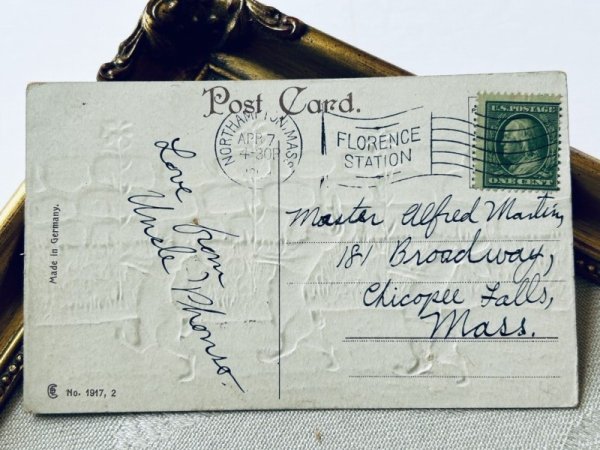 Post Card.
NORTHAMPTON, MASS.
APR 7
4-30P
FLORENCE
STATION
U.S. POSTAGE
ONE CENT
Love from
Uncle
Master Alfred Martin,
181 Broadway,
Chicopee Falls,
Mass.
Made in Germany.
No. 1917, 2